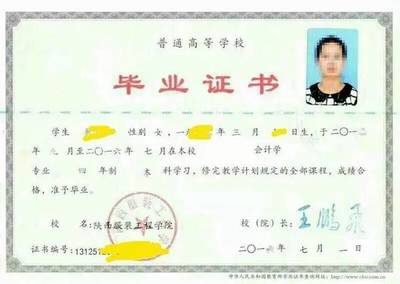 普通高等学校
毕业证书
学生 性别 女，一九 年 三 月 日生，于二〇一二
年 九 月至二〇一六年 七 月在本校 会计学
专业 四 年制 本 科学习，修完教学计划规定的全部课程，成绩合
格，准予毕业。
校 名：陕西服装工程学院 校（院）长：王鹏飞
证书编号：13125120
二〇一六年 七 月 一 日
中华人民共和国教育部学历证书查询网址：http://www.chsi.com.cn